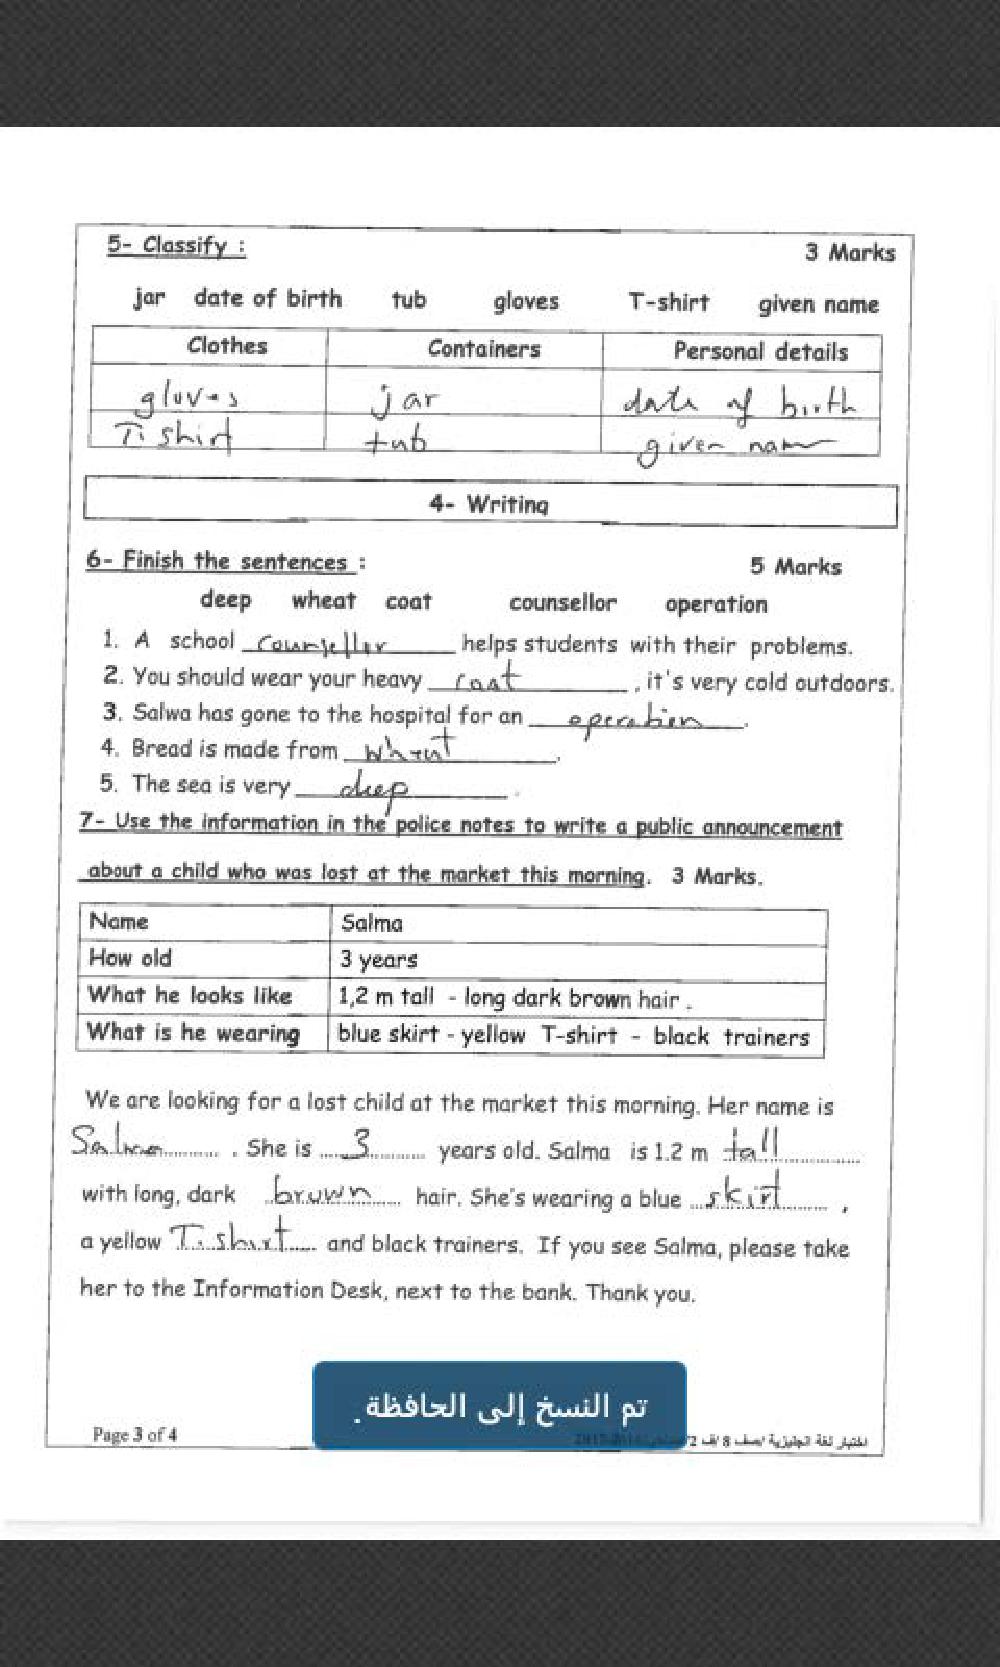 5- Classify :
3 Marks
jar date of birth tub gloves T-shirt given name
Clothes Containers Personal details
gloves jar date of birth
T. shirt tub given name
4- Writing
6- Finish the sentences : 5 Marks
deep wheat coat counsellor operation
1. A school counsellor helps students with their problems.
2. You should wear your heavy coat , it's very cold outdoors.
3. Salwa has gone to the hospital for an operation .
4. Bread is made from wheat .
5. The sea is very deep .
7- Use the information in the police notes to write a public announcement
about a child who was lost at the market this morning. 3 Marks.
Name Salma
How old 3 years
What he looks like 1,2 m tall - long dark brown hair .
What is he wearing blue skirt - yellow T-shirt - black trainers
We are looking for a lost child at the market this morning. Her name is
Salma . She is 3 years old. Salma is 1.2 m tall
with long, dark brown hair. She's wearing a blue skirt ,
a yellow T. shirt and black trainers. If you see Salma, please take
her to the Information Desk, next to the bank. Thank you.
تم النسخ إلى الحافظة.
Page 3 of 4
اختبار لغة انجليزية /صف 8 /ف 2/